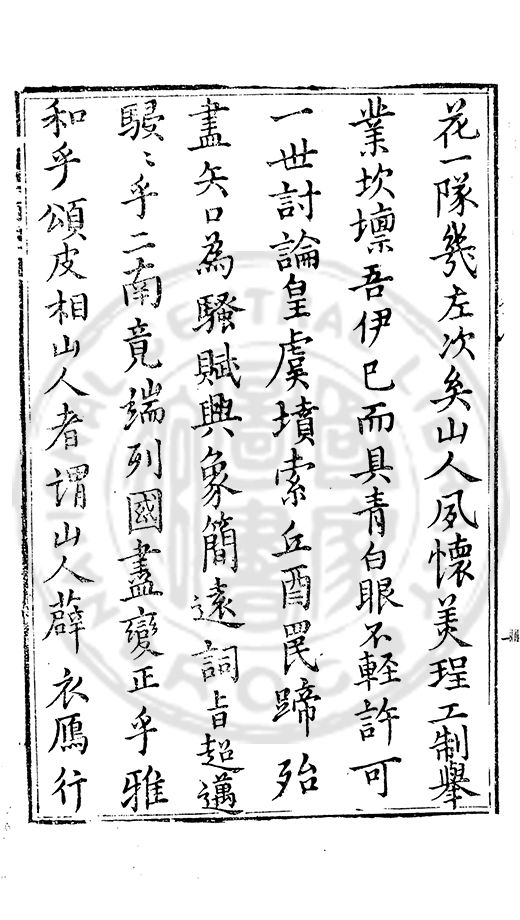 花一隊幾左次矣山人夙懷美珵工制舉
業坎壈吾伊已而具青白眼不輕許可
一世討論皇虞墳索丘酉罠蹄殆
盡矢口為騷賦興象簡遠詞旨超邁
駸〻乎二南竟端列國盡變正乎雅
和乎頌皮相山人者謂山人薜衣鴈行